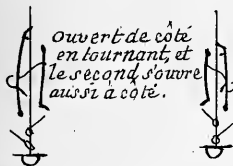 ouvert de côté
en tournant, et
le second s'ouvre
aussi à côté.